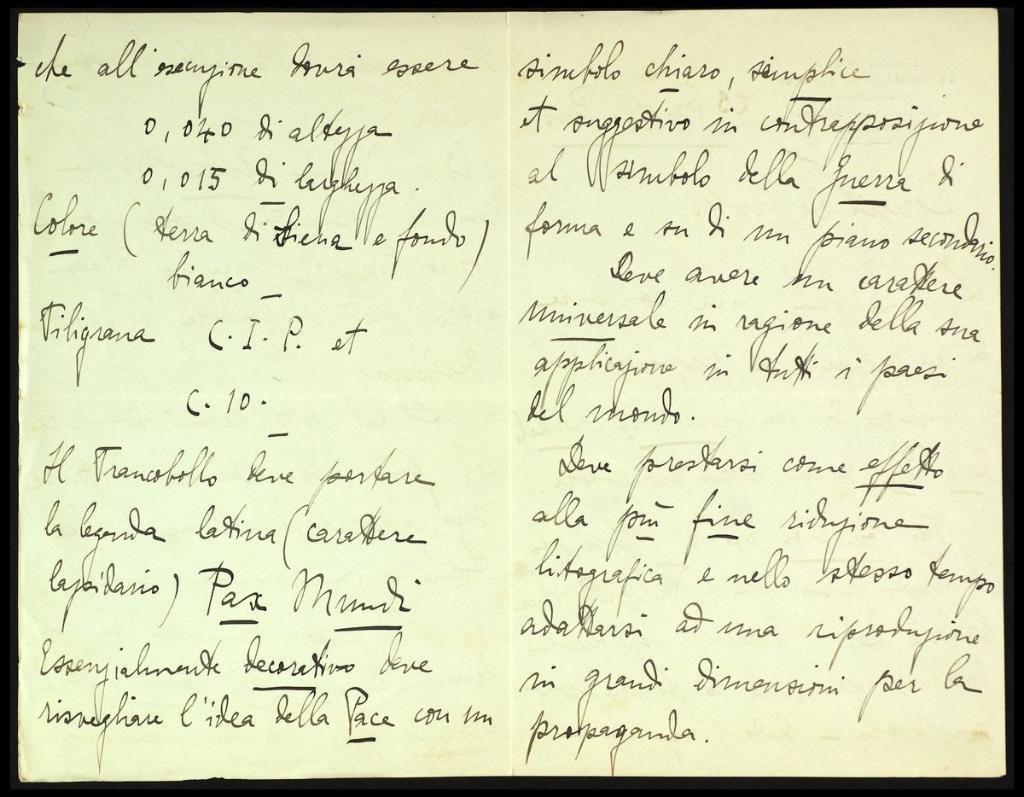 che all'esecuzione dovrà essere
0,040 di altezza
0,015 di larghezza.
Colore (terra di Siena e fondo)
bianco
Filigrana C. I. P. et
C. 10.
Il Francobollo deve portare
la legenda latina (carattere
lapidario) Pax Mundi
Essenzialmente decorativo deve
risvegliare l'idea della Pace con un
simbolo chiaro, semplice
et suggestivo in contrapposizione
al simbolo della Guerra di
forma e su di un piano secondario.
Deve avere un carattere
universale in ragione della sua
applicazione in tutti i paesi
del mondo.
Deve prestarsi come effetto
alla più fine riduzione
litografica e nello stesso tempo
adattarsi ad una riproduzione
in grandi dimensioni per la
propaganda.